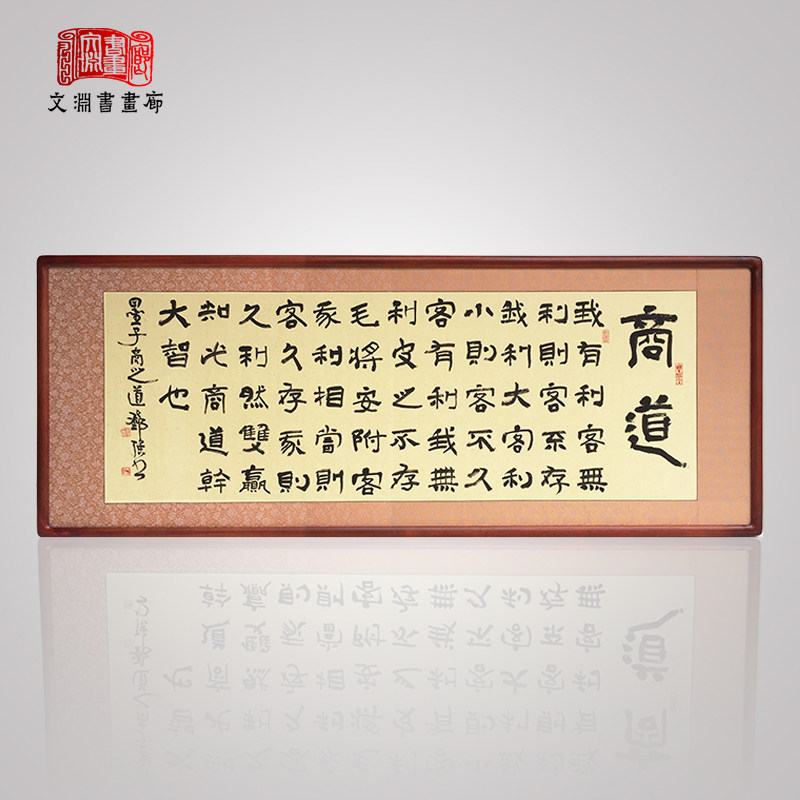 文淵書畫廊
商道
我有利客無
利則客不存
我利大客利
小則客不久
客有利我無
利皮之不存
毛將安附客
我利相當則
客久存我則
久利然雙贏
知此商道幹
大智也
墨子商之道